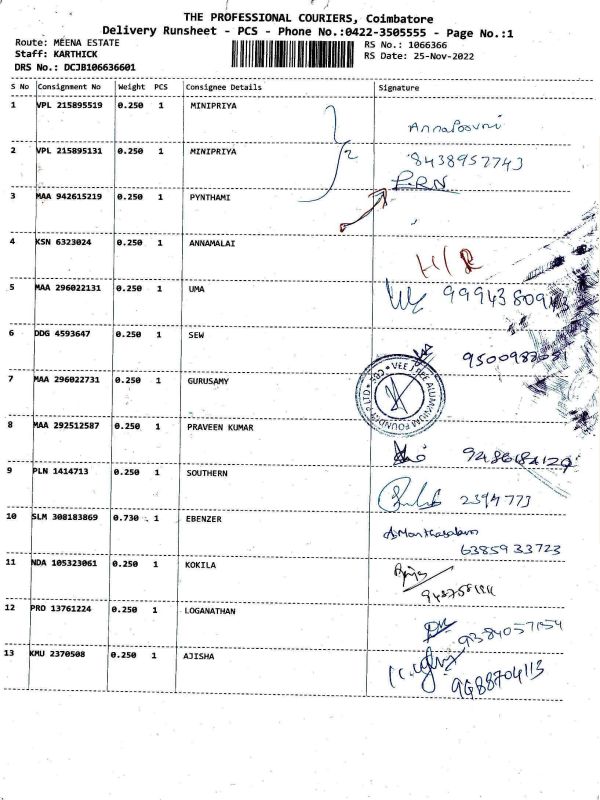 THE PROFESSIONAL COURIERS, Coimbatore
Delivery Runsheet - PCS - Phone No.:0422-3505555 - Page No.:1
Route: MEENA ESTATE
RS No.: 1066366
Staff: KARTHICK
RS Date: 25-Nov-2022
DRS No.: DCJB106636601
S No Consignment No Weight PCS Consignee Details Signature
1 VPL 215895519 0.250 1 MINIPRIYA
Annapoorni
2 VPL 215895131 0.250 1 MINIPRIYA 2
8438957743
3 MAA 942615219 0.250 1 PYNTHAMI
4 KSN 6323024 0.250 1 ANNAMALAI
5 MAA 296022131 0.250 1 UMA
6 DDG 4593647 0.250 1 SEW
7 MAA 296022731 0.250 1 GURUSAMY
8 MAA 292512587 0.250 1 PRAVEEN KUMAR
9 PLN 1414713 0.250 1 SOUTHERN
2394773
10 SLM 308183869 0.730 1 EBENZER
6385933723
11 NDA 105323061 0.250 1 KOKILA
12 PRO 13761224 0.250 1 LOGANATHAN
9384057154
13 KMU 2370508 0.250 1 AJISHA
9688704113